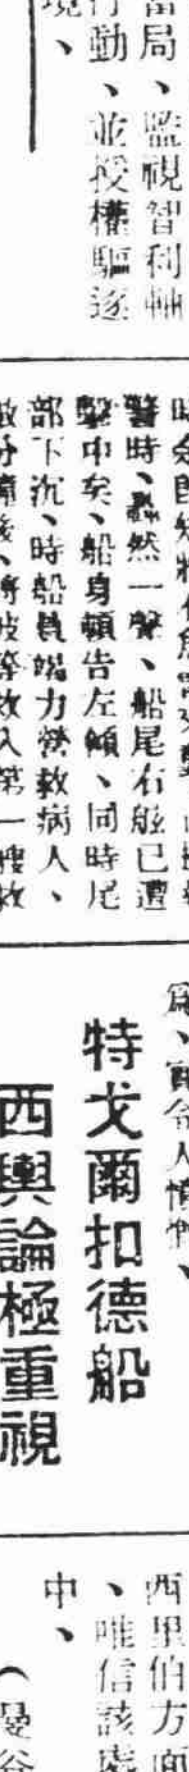 當局、監視智利軸
行動、並授權驅逐
境、
警時、轟然一聲、船尾右舷已遭
擊中矣、船身頓告左傾、同時尾
部下沉、時船員竭力營救病人、
為、實令人憤慨、
特戈爾扣德船
西輿論極重視
西里伯方面
、唯信該處
中、
（曼谷